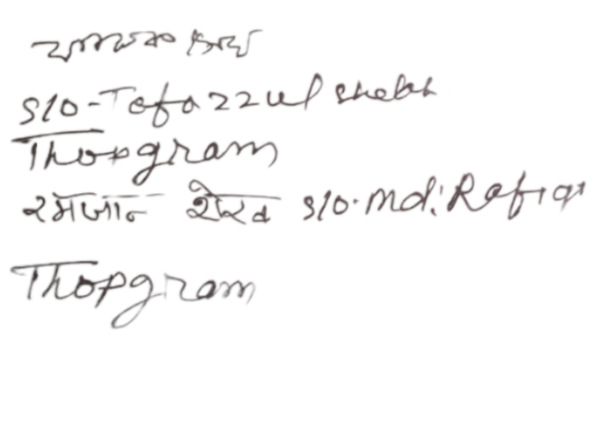 S/O-Tofazzul Shekh
Thopgram
रमजान शेख S/O. Md. Rafiqa
Thopgram